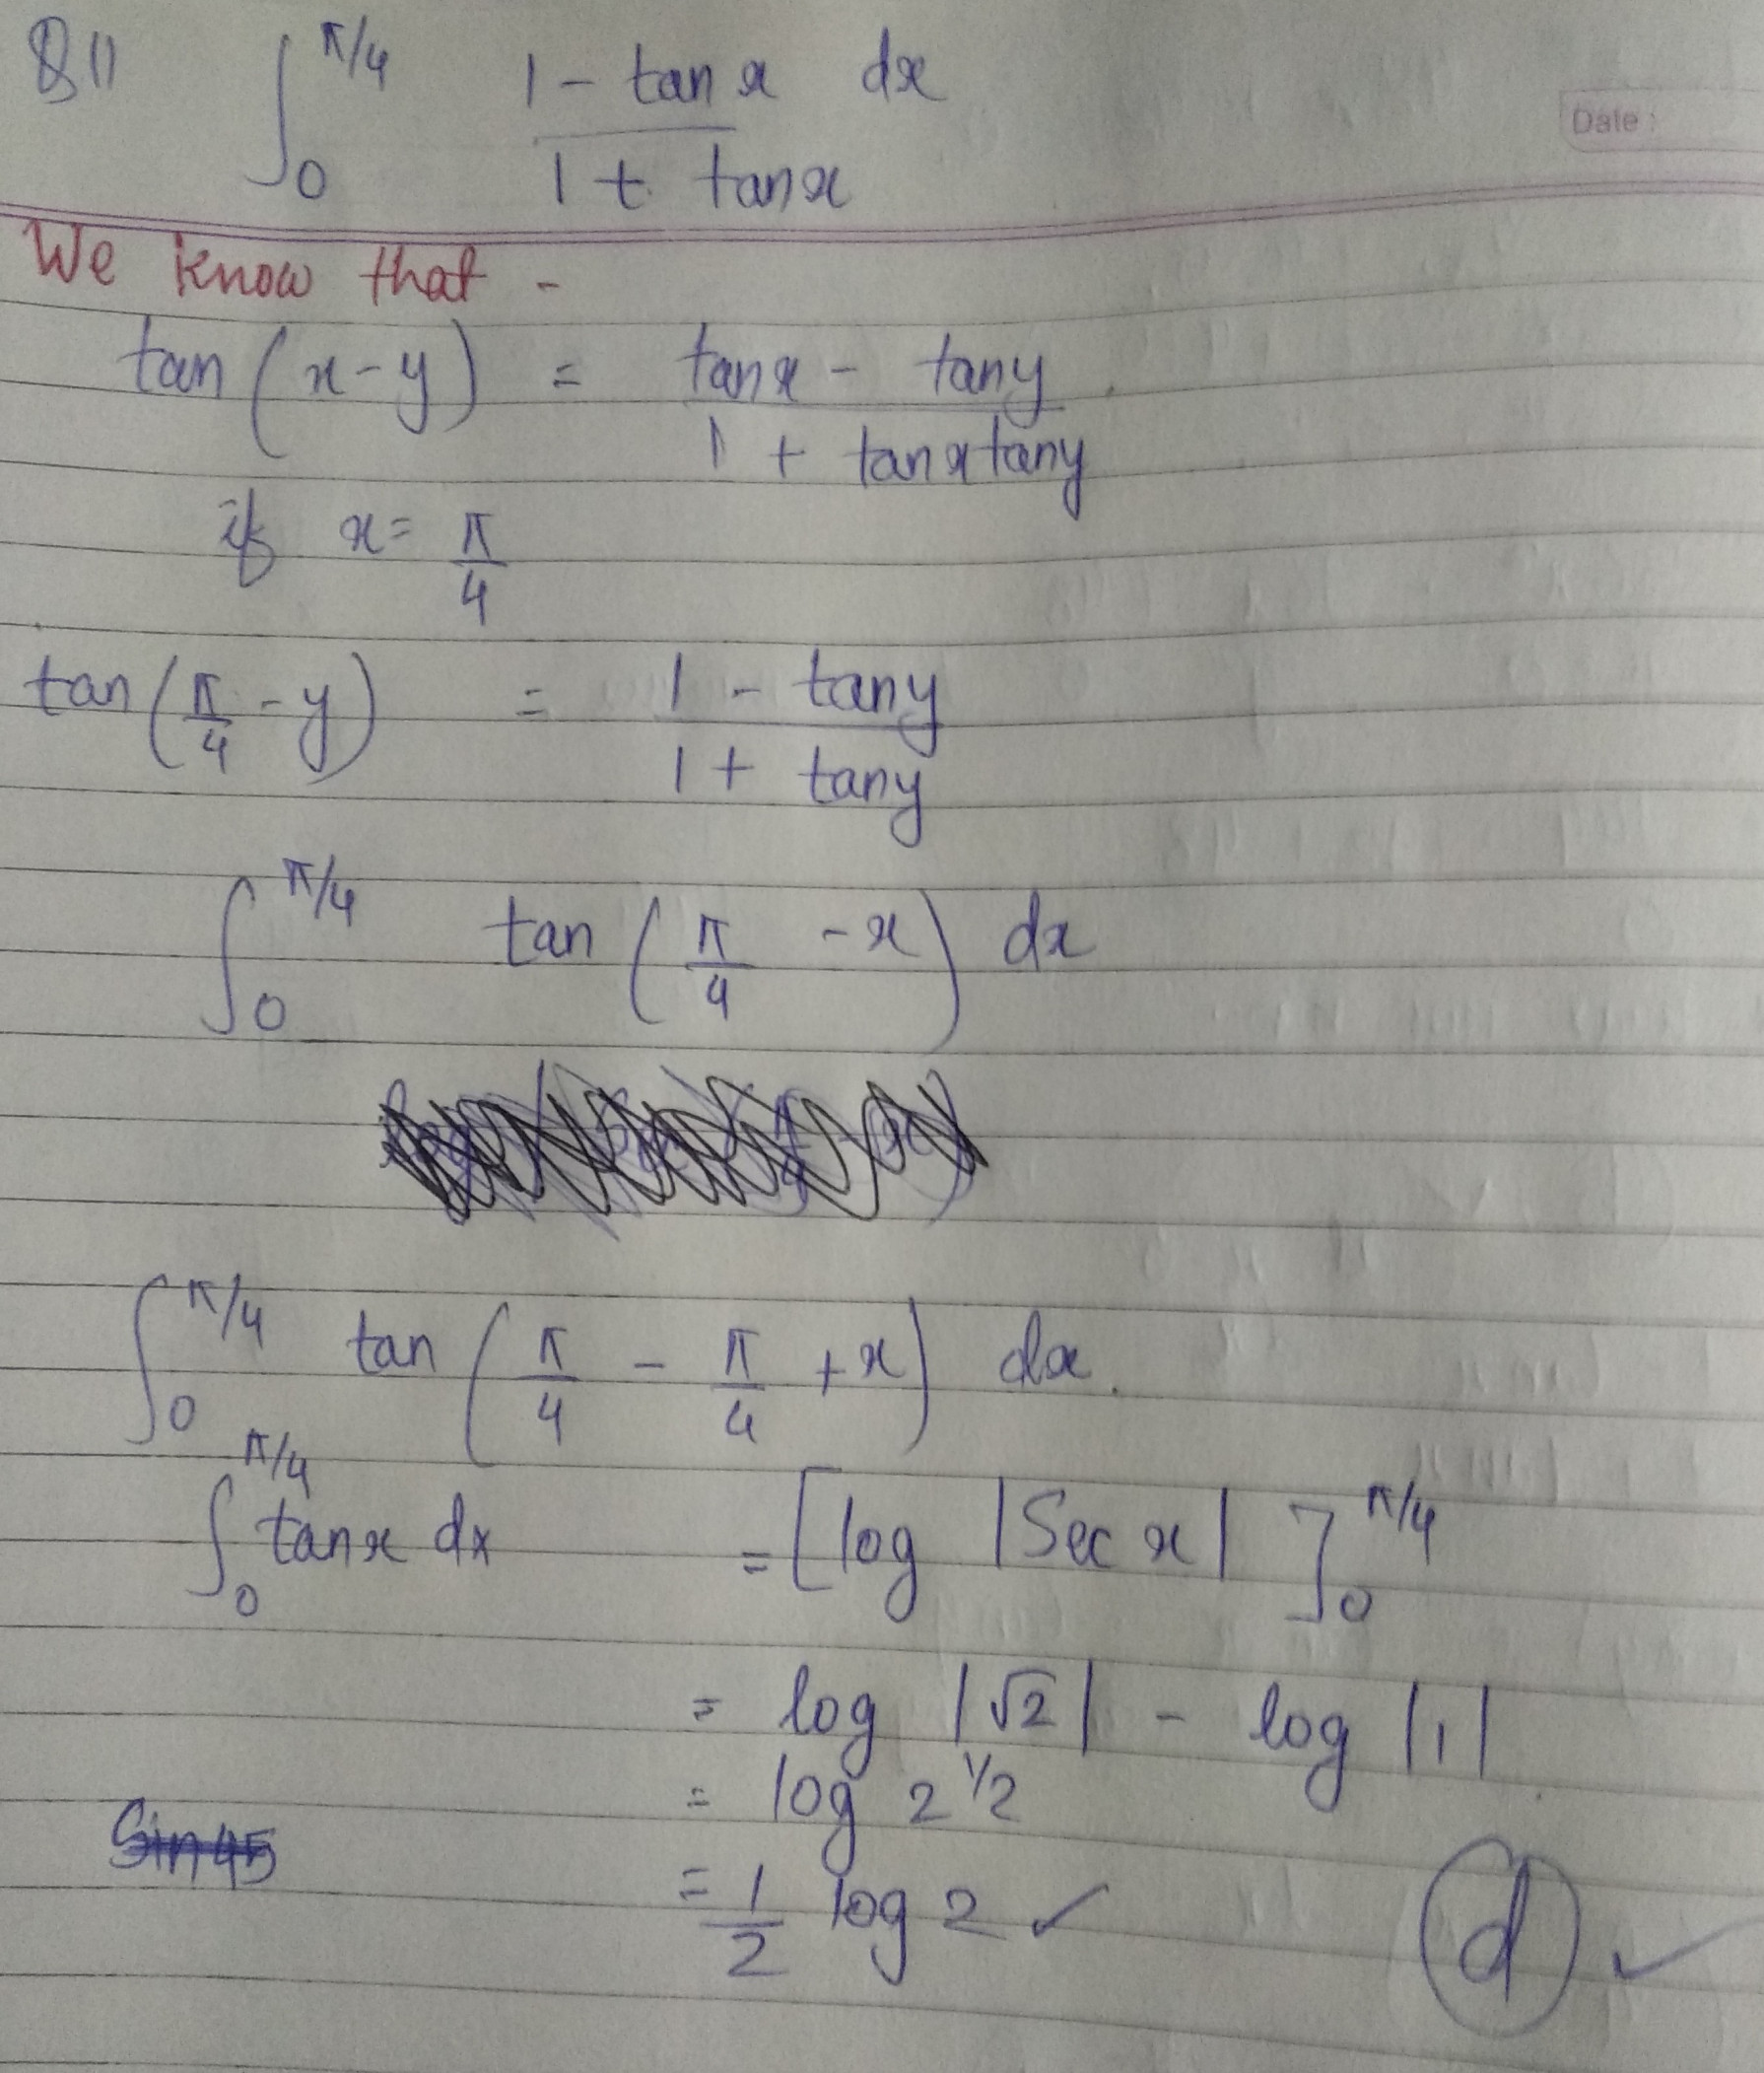 Q11 ∫₀^π/4 1 - tan x dx
1 + tan x
Date :
We know that -
tan (x - y) = tan x - tan y
1 + tan x tan y
if x = π/4
tan (π/4 - y) = 1 - tan y
1 + tan y
∫₀^π/4 tan (π/4 - x) dx
∫₀^π/4 tan (π/4 - π/4 + x) dx.
∫₀^π/4 tan x dx = [log |Sec x|]₀^π/4
= log |√2| - log |1|
= log 2^1/2
Sin 45
= 1/2 log 2 ✓ d ✓